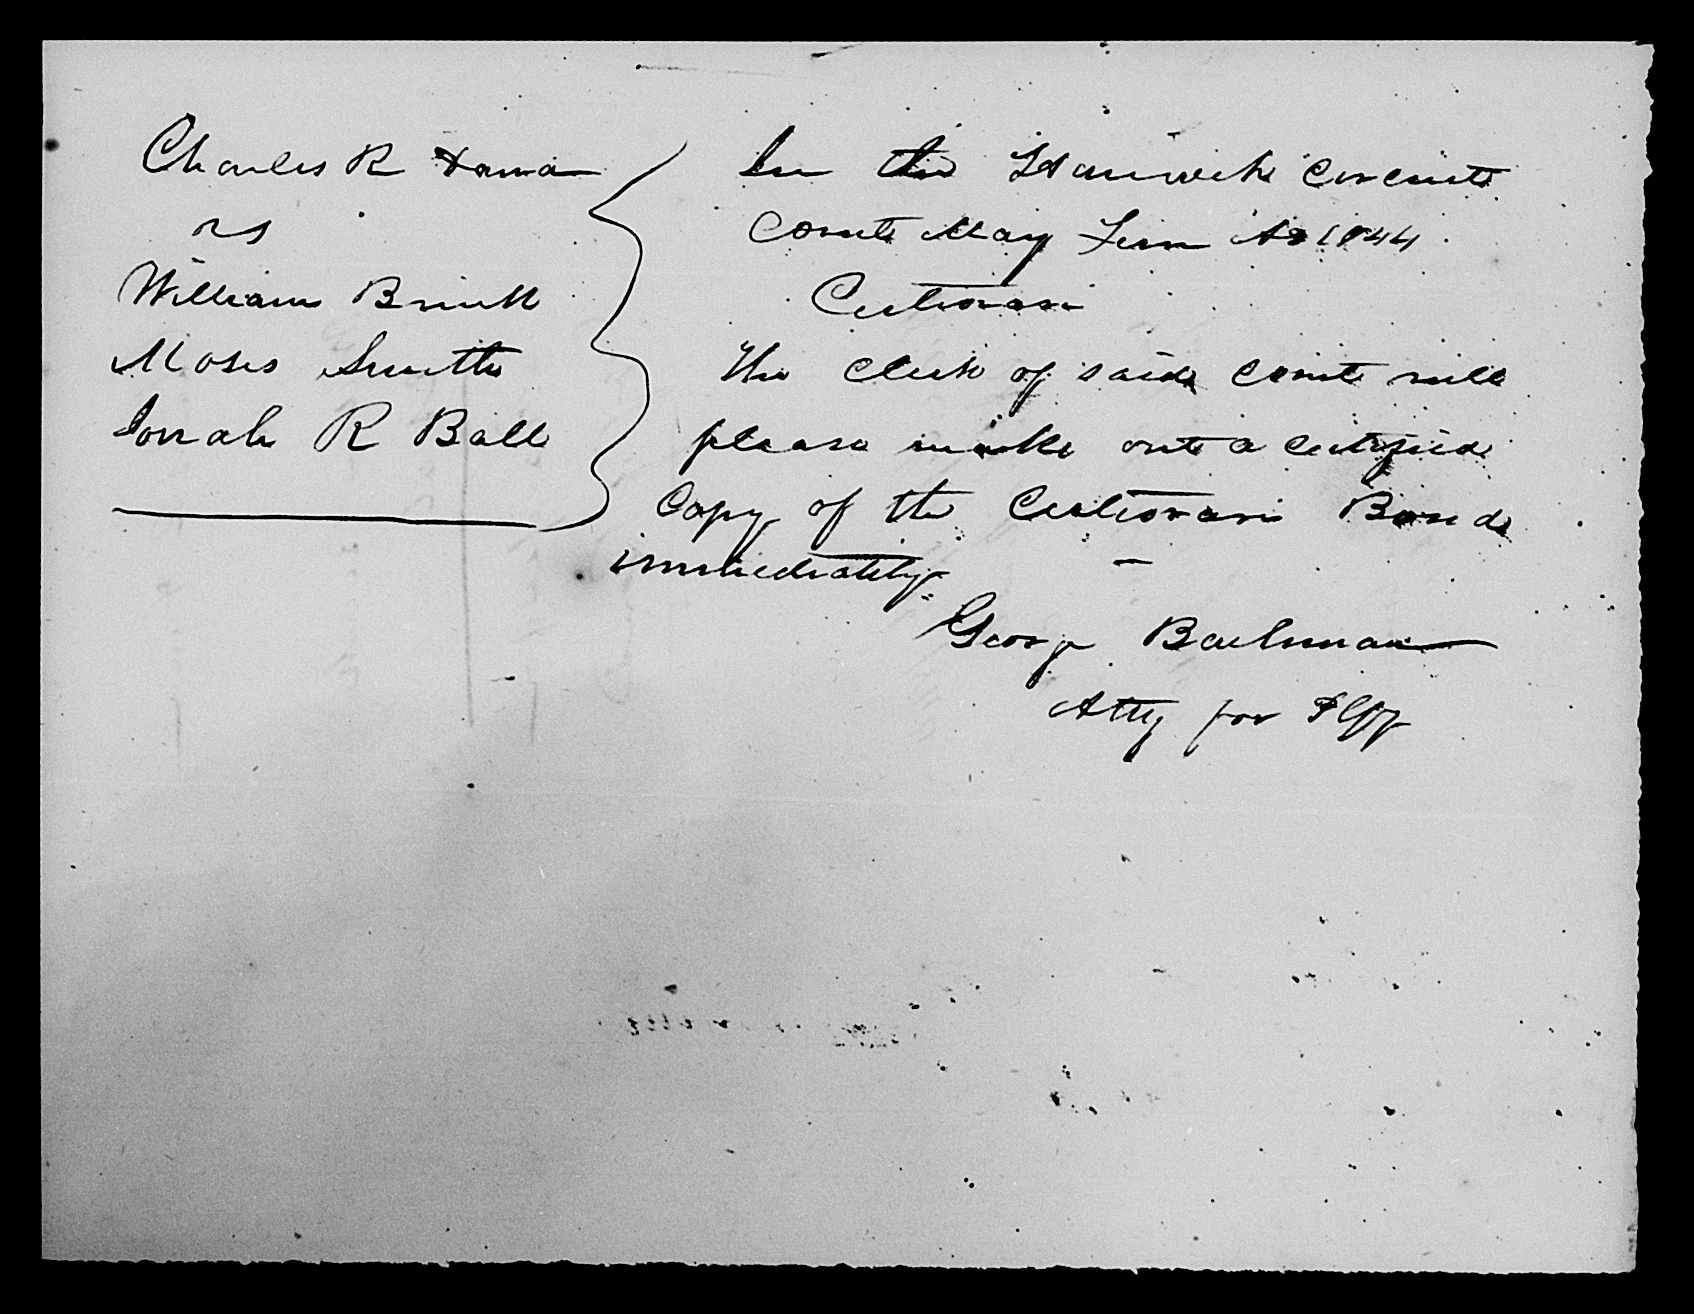 Charles R
vs
William
Moses Smith
Jonah R Ball
In the Circuit
Court May Term AD 1844
Certiorari
The Clerk of said Court will
please make out a certified
Copy of the Certiorari Bond
immediately
George Bachman
Atty for Plff